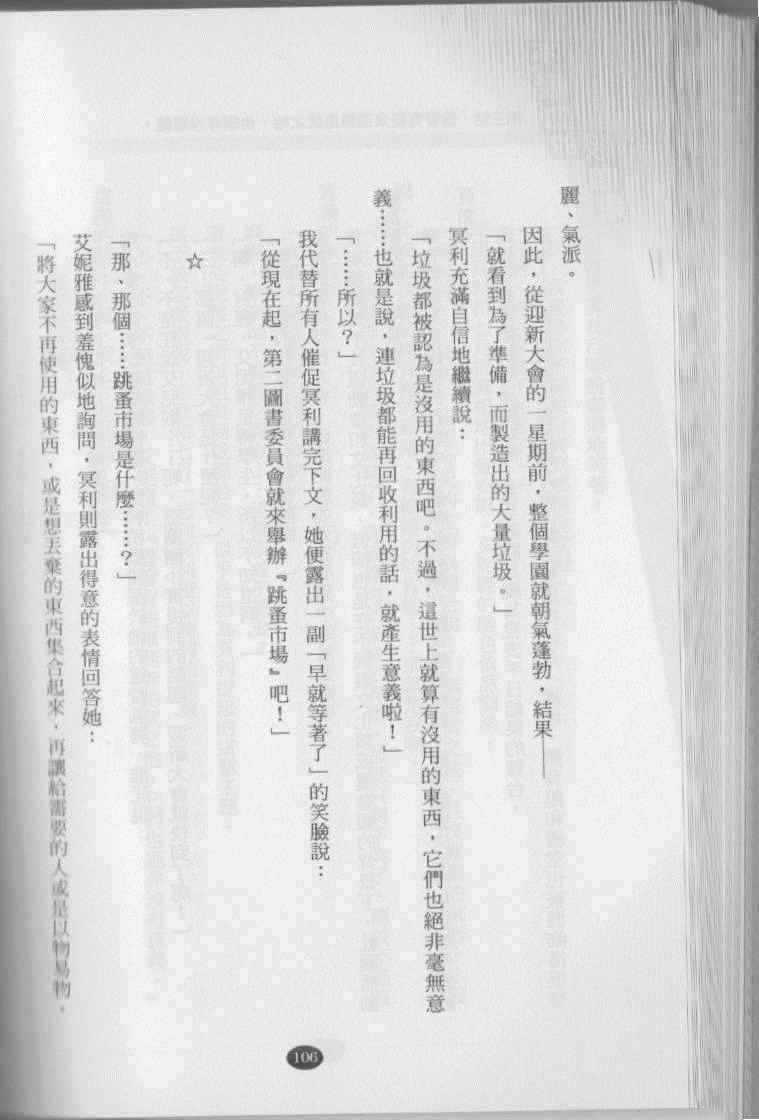 麗、氣派。
因此，從迎新大會的一星期前，整個學園就朝氣蓬勃，結果——
「就看到為了準備，而製造出的大量垃圾。」
冥利充滿自信地繼續說：
「垃圾都被認為是沒用的東西吧。不過，這世上就算有沒用的東西，它們也絕非毫無意
義……也就是說，連垃圾都能再回收利用的話，就產生意義啦！」
「……所以？」
我代替所有人催促冥利講完下文，她便露出一副「早就等著了」的笑臉說：
「從現在起，第二圖書委員會就來舉辦『跳蚤市場』吧！」
☆
「那、那個……跳蚤市場是什麼……？」
艾妮雅感到羞愧似地詢問，冥利則露出得意的表情回答她：
「將大家不再使用的東西，或是想丟棄的東西集合起來，再讓給需要的人或是以物易物，
106